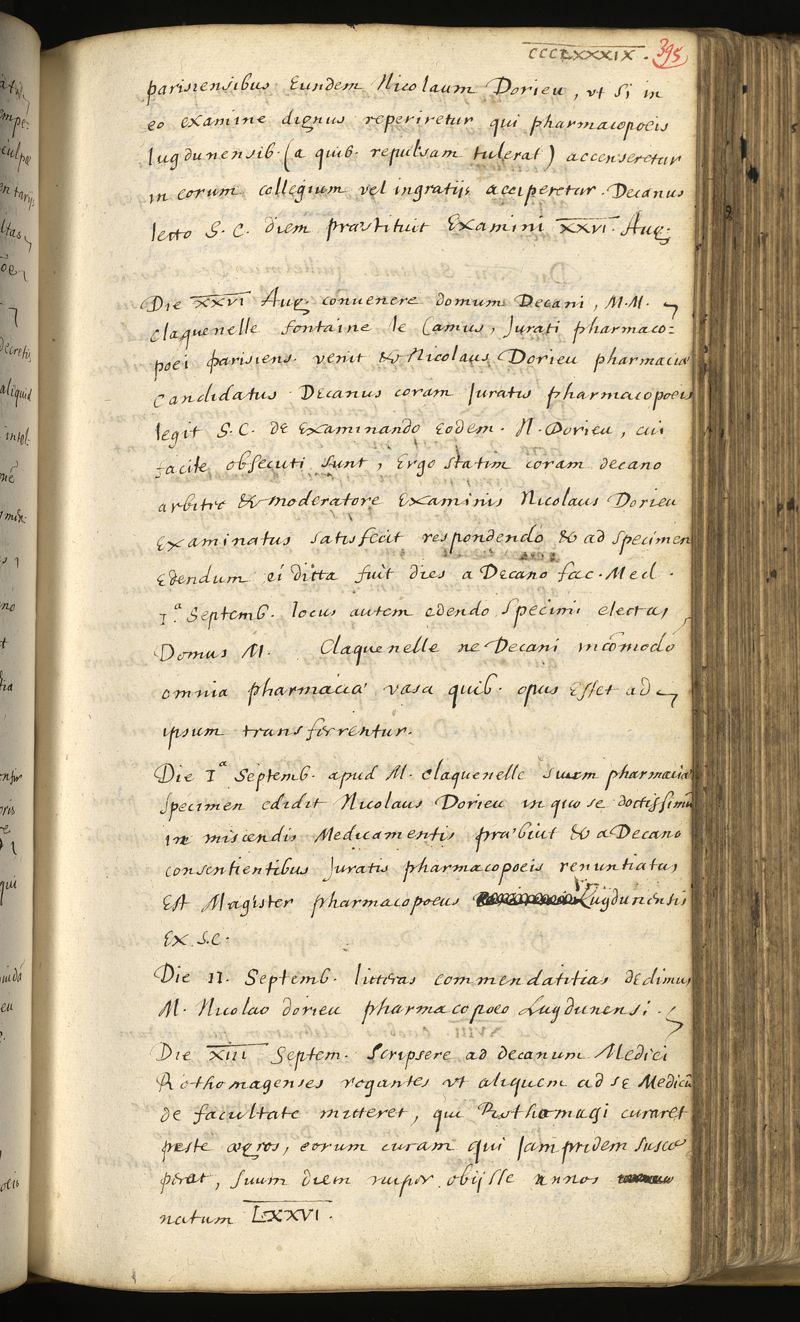 CCCLXXXIX. 395
parisiensibus Eundem Nicolaum Dorieu, vt si in
eo examine dignus reperiretur qui pharmacopoeis
lugdunensib. (a quib. repulsam tulerat) accenseretur
in eorum collegium vel ingratijs acciperetur. Decanus
lecto S. C. diem præstituit Examini XXVI. Aug.
Die XXVI Aug. convenere domum Decani, M.M.
Claquenelle fontaine le Camus, Jurati pharmaco=
poei parisiens. venit & Nicolaus Dorieu pharmaciæ
Candidatus Decanus coram Juratis pharmacopoeis
legit S.C. de Examinando Eodem. N. Dorieu, cui
facile obsecuti sunt, Ergo statim coram decano
arbitro & moderatore Examinis Nicolaus Dorieu
Examinatus satisfecit respondendo & ad specimen
Edendum ei dicta fuit dies a Decano fac. Med.
1.ª Septemb. locus autem edendo specimi electas
Domus M. Claquenelle ne Decani incōmodo
omnia pharmaciæ vasa quib. opus Esset ad
ipsum transferrentur.
Die 1ª Septemb. apud M. Claquenelle suum pharmaciæ
specimen edidit Nicolaus Dorieu in quo se doctissimū
in miscendis Medicamentis præbuit & a Decano
consentientibus Juratis pharmacopoeis renuntiatus
Est Magister pharmacopoeus Lugdunensis
Ex S.C.
Die 11. Septemb. litteras commendatitias dedimus
M. Nicolao dorieu pharmacopoeo Lugdunensi.
Die XIII Septem. Scripsere ad decanum Medici
Rothomagenses rogantes vt aliquem ad se Medicū
de facultate mitteret, qui Rothomagi curaret
peste ægros, eorum curam qui jampridem susce
perat, suum diem nuper obijsse annos
natum LXXVI.